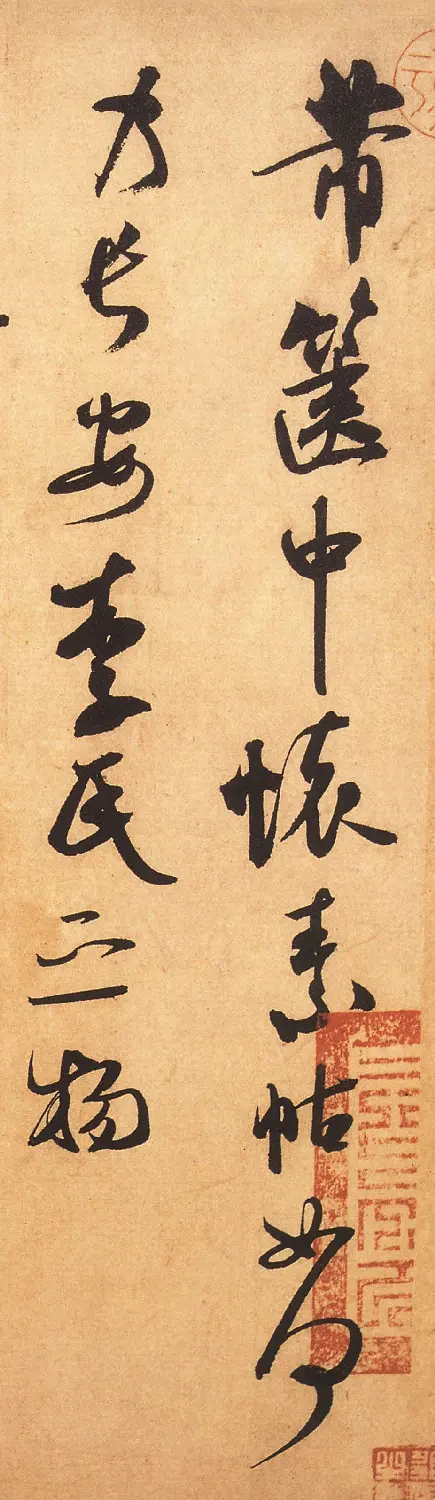 芾篋中懷素帖如何
乃長安李氏之物